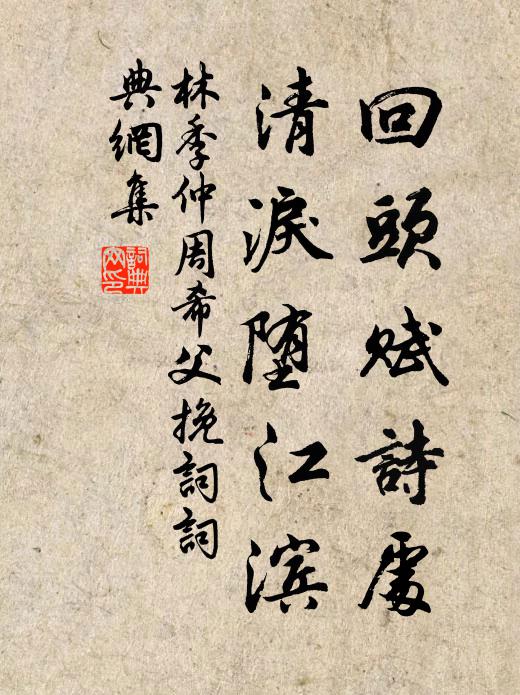 回頭賦詩處
清淚堕江滨
林季仲周希父挽詞詞
典網集
詞典网印